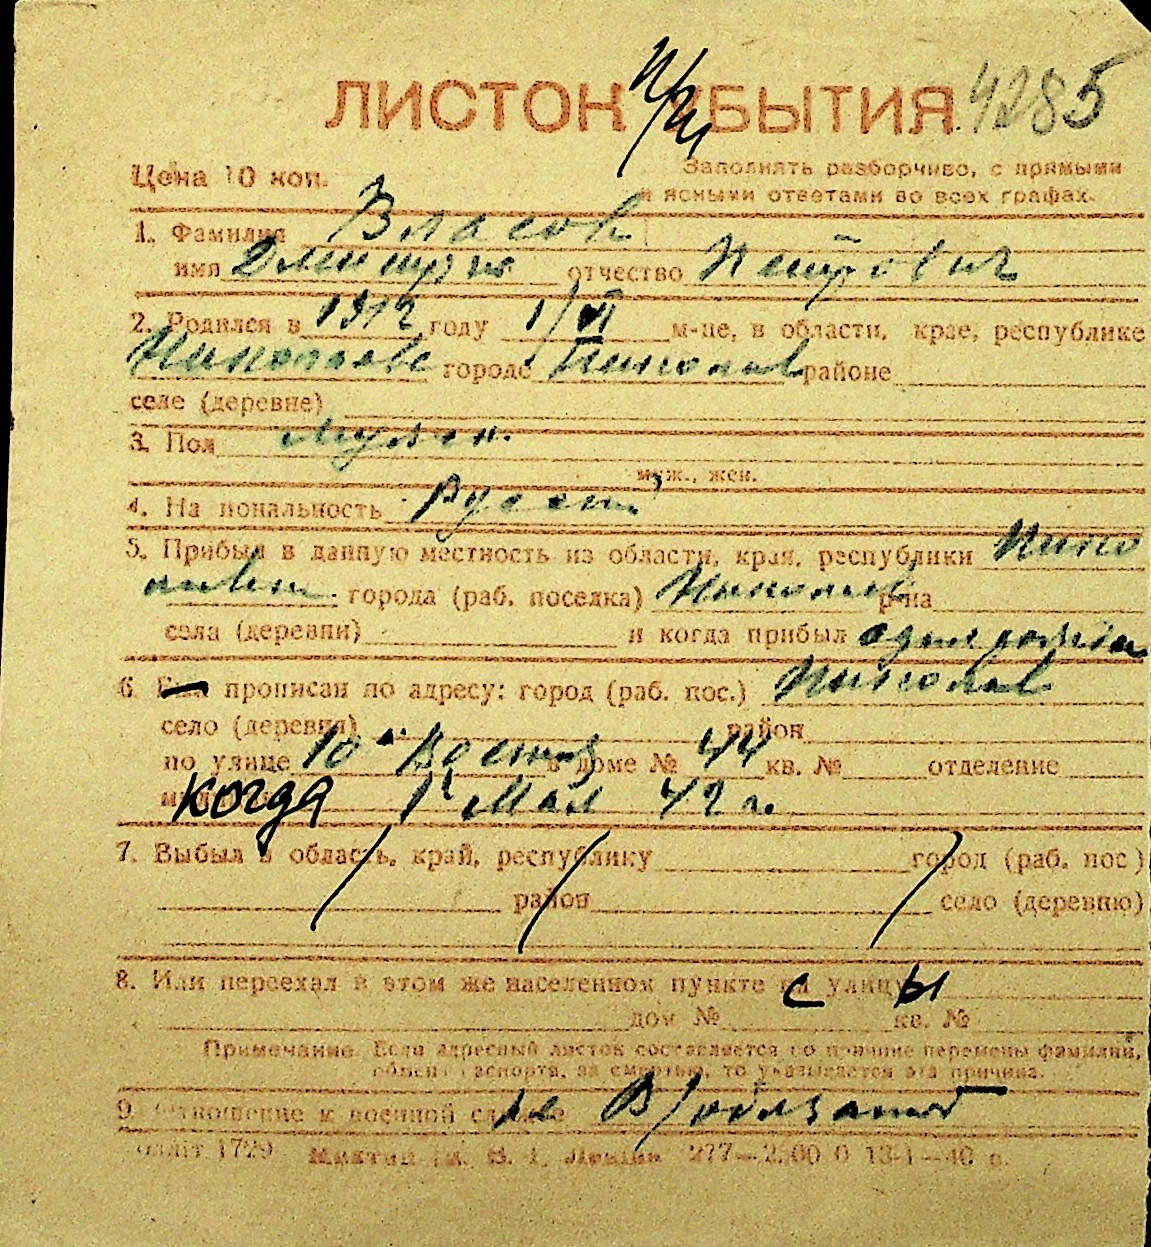 ЛИСТОК ПРИБЫТИЯ 4285
Цена 10 коп. Заполнять разборчиво, с прямыми
и ясными ответами во всех графах.
1. Фамилия Власов
имя Дмитрий отчество Петрович
2. Родился в 1912 году 1/VI м-це, в области, крае, республике
Николаев городе Николаев районе
селе (деревне)
3. Пол мужск.
муж., жен.
4. Национальность Русский
5. Прибыл в данную местность из области, края, республики Нико
лаевск. города (раб. поселка) Николаев р-на
села (деревни) и когда прибыл
6. прописан по адресу: город (раб. пос.) Николаев
село (деревня) район
по улице 10 Военная в доме № 44 кв. № отделение
когда 1 Мая 42 г.
7. Выбыл в область, край, республику город (раб. пос)
район село (деревню)
8. Или переехал в этом же населенном пункте с улицы
дом № кв. №
Примечание. Если адресный листок составляется по причине перемены фамилии,
обмена паспорта, за смертью, то указывается эта причина.
9. Отношение к военной службе не в/обязанный
1729 277—2500 0 13-I—40 р.